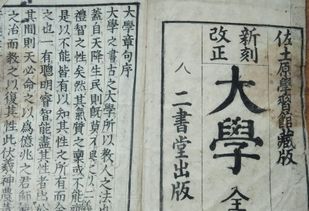 佐土原學習館藏版
新刻
改正
大學 全
二書堂出版
大學章句序
大學之書古之大學所以教人之法也
蓋自天降生民則既莫不與之以
禮智之性矣然其氣質之稟或不能
是以不能皆有以知其性之所有而全
之也一有聰明睿智能盡其性者出於
其間則天必命之以爲億兆之君師
之治而教之以復其性此伏羲神農